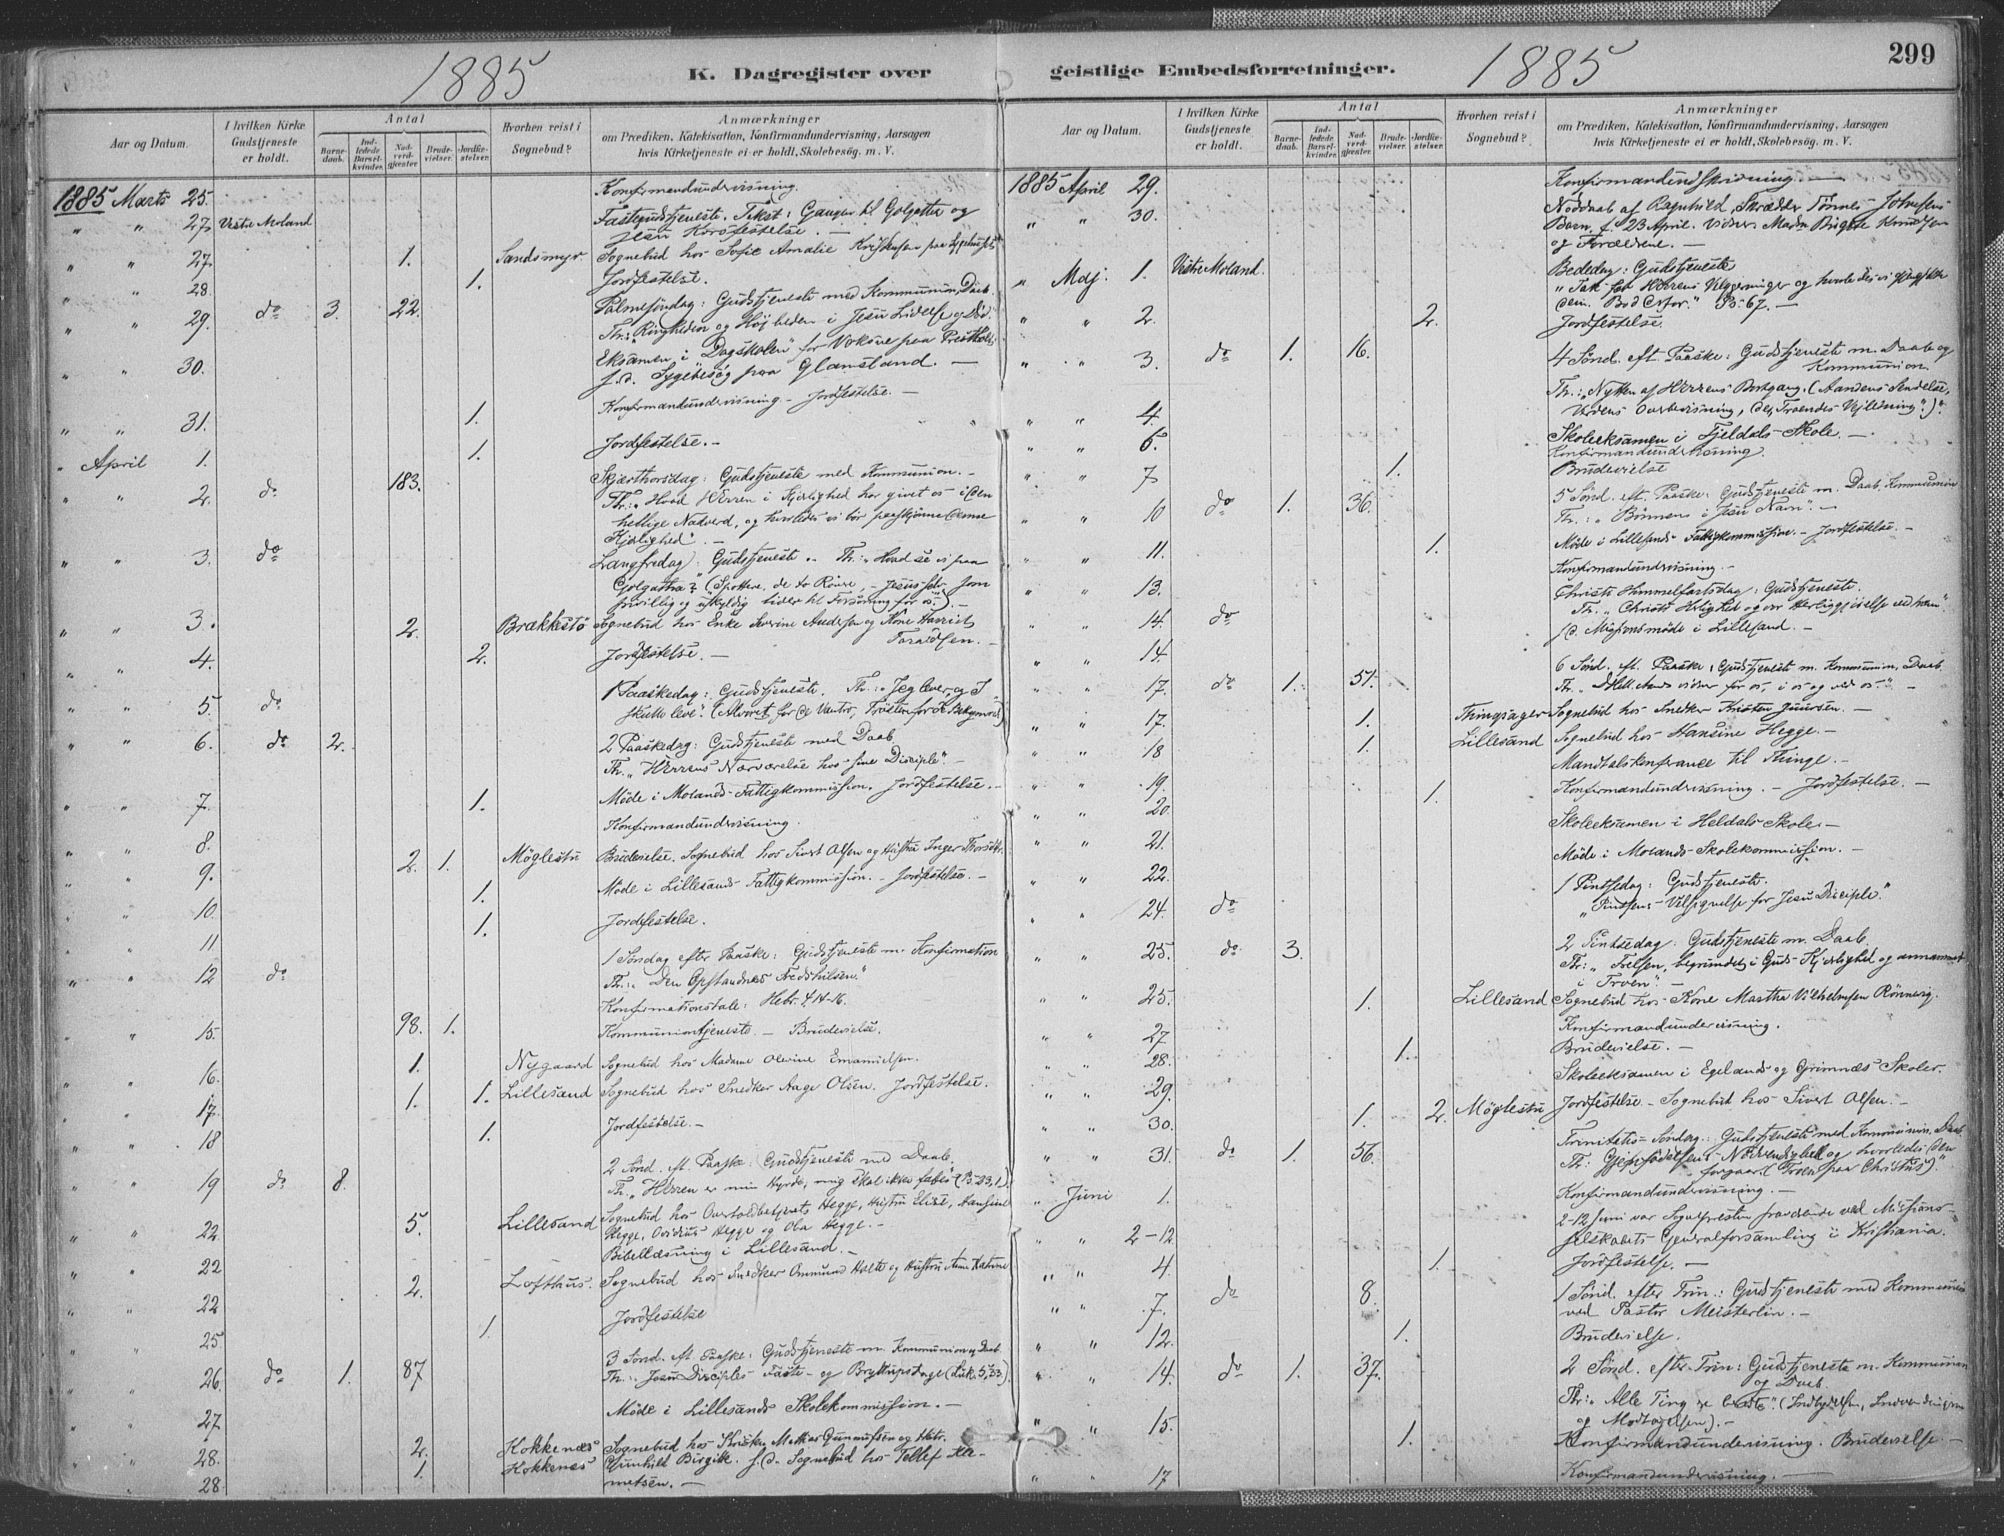 299
1885
K. Dagregister over
geistlige Embedsforretninger.
1885
Aar og Datum.
I hvilken Kirke Gudstjeneste er holdt.
Antal
Barnedaab.
Indledede Barselkvinder.
Nadverdgjester.
Brudevielser.
Jordfæstelser.
Hvorhen reist i Sognebud?
Anmærkninger
om Prædiken, Katekisation, Konfirmandundervisning, Aarsagen
hvis Kirketjeneste ei er holdt, Skolebesøg. m. V.
1885 Marts 25. Konfirmandundervisning.
" " 27. Vestre Moland Fastegudstjeneste. Tekst: Gangen til Golgatha og
Jesu Korsfestelse. —
" " 27. 1. Sandsmyr Sognebud hos Sofie Amalie Kristensen paa Sygehuset
" " 28. 1. Jordfestelse.
" " 29. do 3. 22. Palmesøndag: Gudstjeneste med Kommunion, Daab.
Th: Ringheden og Højheden i Jesu Lidelse og Død.
" " 30. Eksamen i "Dagskolen" for Voksne paa Prestholt
s. d. Sygebesøg paa Glamsland. —
" " 31. 1. Konfirmandundervisning — Jordfestelse. —
" April 1. 1. Jordfestelse. —
" " 2. do 183. Skjærthorsdag: Gudstjeneste med Kommunion. —
Th: "Hvad Herren i Kjærlighed har givet os i den
hellige Nadverd, og hvorledes vi bør paaskjønne denne
Kjærlighed". —
" " 3. do Langfredag: Gudstjeneste. — Th: "Hvad se vi paa
Golgatha?" (Spottere, de to Røvere, — Jesus selv som
frivillig og uskyldig lider til Forsoning for os.) —
" " 3. 2. Brækkestø Sognebud hos Enke Severine Andersen og Kone Harriet
" " 4. 2. Jordfestelse. —
" " 5. do 1 Paaskedag: Gudstjeneste. Th: "Jeg lever, og I
skulle leve". (Alvoret for de Vantro, Trøsten for de Bekymrede)
" " 6. do 2. 2 Paaskedag: Gudstjeneste med Daab.
Th. "Herrens Nærværelse hos sine Disciple". —
" " 7. 1. Møde i Molands Fattigkommission. Jordfestelse. —
" " 8. Konfirmandundervisning.
" " 9. 2. 1. Møglestu Brudevielse. Sognebud hos Sivert Olsen og Hustru Inger
" " 10. 1. Møde i Lillesands Fattigkommission. — Jordfestelse. —
" " 11 1. Jordfestelse.
" " 12 do 1 Søndag efter Paaske: Gudstjeneste m. Konfirmation
Th.: "Den Opstandnes Fredshilsen."
Konfirmationstale: Hebr. 4. 14-16.
" " 15. 98. 1. Kommuniontjeneste. — Brudevielse.
" " 16. 1. Nygaard Sognebud hos Madame Olevine Emanuelsen.
" " 17. 1. 1. Lillesand Sognebud hos Snedker Aage Olsen. Jordfestelse.
" " 18 1. Jordfestelse. —
" " 19 do 8. 2 Sønd. eft. Paaske: Gudstjeneste med Daab.
Th. "Herren er min Hyrde, mig skal ikke fattes" (Ps. 23,1)
" " 22 5. Lillesand Sognebud hos Overtoldbetjent Hegge, Hustru Elise, Hansine
Hegge, Ovidius Hegge og Ola Hegge. —
" " 22 Bibellæsning i Lillesand. —
" " 22 2. Lofthus. Sognebud hos Snedker Ommund Holte og Hustru Anne Katrine
" " 25 1. Jordfestelse
" " 26. do 1. 87 3 Sønd. eft. Paaske: Gudstjeneste m. Kommunion og Daab
Th.: Jesu Disciples Faste- og Bryllupsdage (Luk. 5,33).
" " 27 Møde i Lillesands Skolekommission. —
" " 28. 2. Kokkenæs Sognebud hos
" " 28 1. Kokkenes Gunhild Birgitte. s. d. Sognebud hos Tellef
Aar og Datum.
I hvilken Kirke Gudstjeneste er holdt.
Antal
Barnedaab.
Indledede Barselkvinder.
Nadverdgjester.
Brudevielser.
Jordfæstelser.
Hvorhen reist i Sognebud?
Anmærkninger
om Prædiken, Katekisation, Konfirmandundervisning, Aarsagen
hvis Kirketjeneste ei er holdt, Skolebesøg. m. V.
1885 April 29. Konfirmandindskrivning. —
" " 30. Nøddaab af Ragnhild, Skrædder Tønnes Johnsens
Barn, f. 23 April. Vidner: Madm Birgitte Knudsen
og Forældrene. —
" Maj. 1. Vestre Moland. Bededag: Gudstjeneste
"Tak for Herrens Velgjerninger og hvorledes vi
dem. Bod derfor." Ps. 67. —
" " 2. 2. Jordfestelse.
" " 3. do 1. 16. 4 Sønd. eft. Paaske: Gudstjeneste m. Daab og
Kommunion.
Th.: "Nytten af Herrens Bortgang. (Aandens Sendelse,
Verdens Overbevisning, de Troendes Vejledning".)
" " 4. Skoleeksamen i Fjeldals Skole. —
" " 6. Konfirmandundervisning.
" " 7 1. Brudevielse
" " 10 do 1. 36. 5 Sønd. eft. Paaske: Gudstjeneste m. Daab, Kommunion
Th.: "Bønnen i Jesu Navn". —
" " 11. 1. Møde i Lillesands Fattigkommission. — Jordfestelse. —
" " 13. Konfirmandundervisning. —
" " 14. do Christi Himmelfartsdag: Gudstjeneste.
Th. "Christi Herlighed og vor Herliggjørelse ved ham".
" " 14. s. d. Missionsmøde i Lillesand. —
" " 17. do 1. 51. 6 Sønd. eft. Paaske: Gudstjeneste m. Kommunion, Daab.
Th. "D. Hell. Aands vidner for os, i os og ved os." —
" " 17. 1. Tingsager Sognebud hos Snedker Kristen —
" " 18 1. Lillesand Sognebud hos Hansine Hegge. —
" " 19. Mandtalskonferance til Thinge. —
" " 20 1. Konfirmandundervisning. — Jordfestelse. —
" " 21. Skoleeksamen i Heldals Skole. —
" " 22. Møde i Molands Skolekommission. —
" " 24. do 1 Pintsedag: Gudstjeneste.
"Pintsens Velsignelse for Jesu Disciple."
" " 25. do. 3. 2 Pintsedag: Gudstjeneste m. Daab.
Th: "Frelsen, begrundet i Guds Kjærlighed og annammet
i Troen". —
" " 25. 1. Lillesand Sognebud hos Kone Martha Vilhelmsen Rønnevig.
" " 27 Konfirmandundervisning.
" " 28. 1. Brudevielse. —
" " 29. Skoleeksamen i Egelands og Grimnæs Skoler.
" " 30. 1. 2. Møglestu Jordfestelse. — Sognebud hos Sivert Olsen. —
" " 31. do 1. 56. Trinitatis Søndag: Gudstjeneste med Kommunion, Daab.
Th: Gjenfødelsens Nødvendighed og hvorledes den
foregaar. (Troen paa Christus)."
" Juni 1. Konfirmandundervisning. —
" " 2-12. 2-12 Juni var Sognepresten fraværende ved Missions-
selskabets Generalforsamling i Kristiania.
" " 4 1. Jordfestelse. —
" " 7. do 8. 1 Sønd. efter Trin.: Gudstjeneste med Kommunion
ved Pastor Meisterlin. —
" " 12. 1. Brudevielse.
" " 14. do 1. 37. 2 Sønd. efter Trin: Gudstjeneste m. Kommunion
og Daab.
Th: "Alle Ting ere rede". (Indbydelsen, Indvendingerne
og Modtagelsen). —
" " 15. 1. Konfirmandundervisning. Brudevielse —
" " 17 Konfirmandundervisning. —